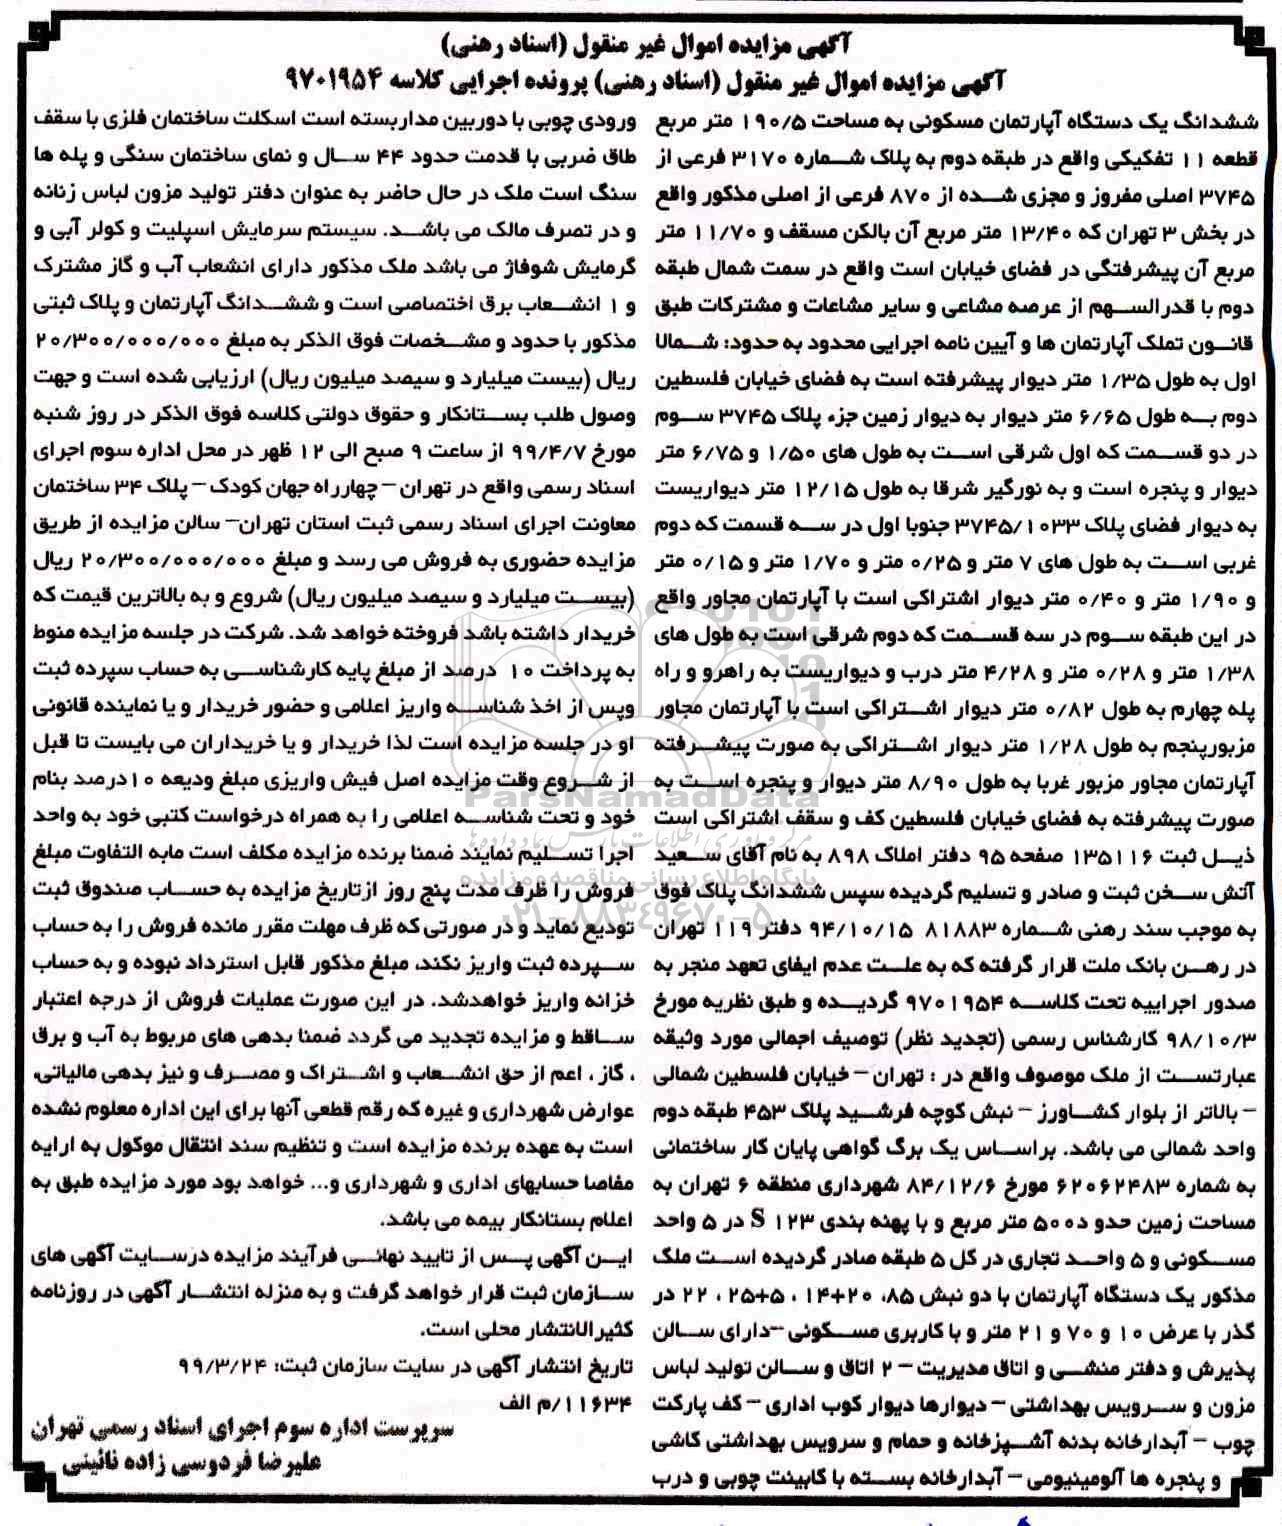 آگهی مزایده اموال غیر منقول (اسناد رهنی)
آگهی مزایده اموال غیر منقول (اسناد رهنی) پرونده اجرایی کلاسه ۹۷۰۱۹۵۴
ششدانگ یک دستگاه آپارتمان مسکونی به مساحت ۱۹۰/۵ متر مربع
قطعه ۱۱ تفکیکی واقع در طبقه دوم به پلاک شماره ۳۱۷۰ فرعی از
۳۷۴۵ اصلی مفروز و مجزی شده از ۸۷۰ فرعی از اصلی مذکور واقع
در بخش ۳ تهران که ۱۳/۴۰ متر مربع آن بالکن مسقف و ۱۱/۷۰ متر
مربع آن پیشرفتگی در فضای خیابان است واقع در سمت شمال طبقه
دوم با قدرالسهم از عرصه مشاعی و سایر مشاعات و مشترکات طبق
قانون تملک آپارتمان ها و آیین نامه اجرایی محدود به حدود: شمالا
اول به طول ۱/۳۵ متر دیوار پیشرفته است به فضای خیابان فلسطین
دوم به طول ۶/۶۵ متر دیوار به دیوار زمین جزء پلاک ۳۷۴۵ سوم
در دو قسمت که اول شرقی است به طول های ۱/۵۰ و ۶/۷۵ متر
دیوار و پنجره است و به نورگیر شرقا به طول ۱۲/۱۵ متر دیواریست
به دیوار فضای پلاک ۳۷۴۵/۱۰۳۳ جنوبا اول در سه قسمت که دوم
غربی است به طول های ۷ متر و ۰/۲۵ متر و ۱/۷۰ متر و ۰/۱۵ متر
و ۱/۹۰ متر و ۰/۴۰ متر دیوار اشتراکی است با آپارتمان مجاور واقع
در این طبقه سوم در سه قسمت که دوم شرقی است به طول های
۱/۳۸ متر و ۰/۲۸ متر و ۴/۲۸ متر درب و دیواریست به راهرو و راه
پله چهارم به طول ۰/۸۲ متر دیوار اشتراکی است با آپارتمان مجاور
مزبورپنجم به طول ۱/۲۸ متر دیوار اشتراکی به صورت پیشرفته
آپارتمان مجاور مزبور غربا به طول ۸/۹۰ متر دیوار و پنجره است به
صورت پیشرفته به فضای خیابان فلسطین کف و سقف اشتراکی است
ذیل ثبت ۱۳۵۱۱۶ صفحه ۹۵ دفتر املاک ۸۹۸ به نام آقای سعید
آتش سخن ثبت و صادر و تسلیم گردیده سپس ششدانگ پلاک فوق
به موجب سند رهنی شماره ۸۱۸۸۳ ۹۴/۱۰/۱۵ دفتر ۱۱۹ تهران
در رهن بانک ملت قرار گرفته که به علت عدم ایفای تعهد منجر به
صدور اجراییه تحت کلاسه ۹۷۰۱۹۵۴ گردیده و طبق نظریه مورخ
۹۸/۱۰/۳ کارشناس رسمی (تجدید نظر) توصیف اجمالی مورد وثیقه
عبارتست از ملک موصوف واقع در : تهران – خیابان فلسطین شمالی
– بالاتر از بلوار کشاورز – نبش کوچه فرشید پلاک ۴۵۳ طبقه دوم
واحد شمالی می باشد. براساس یک برگ گواهی پایان کار ساختمانی
به شماره ۶۲۰۶۲۴۸۳ مورخ ۸۴/۱۲/۶ شهرداری منطقه ۶ تهران به
مساحت زمین حدود۵۰۰ متر مربع و با پهنه بندی S ۱۲۳ در ۵ واحد
مسکونی و ۵ واحد تجاری در کل ۵ طبقه صادر گردیده است ملک
مذکور یک دستگاه آپارتمان با دو نبش ۸۵، ۲۰+۱۴ ، ۵+۲۵ ، ۲۲ در
گذر با عرض ۱۰ و ۷۰ و ۲۱ متر و با کاربری مسکونی –دارای سالن
پذیرش و دفتر منشی و اتاق مدیریت – ۲ اتاق و سالن تولید لباس
مزون و سرویس بهداشتی – دیوارها دیوار کوب اداری – کف پارکت
چوب – آبدارخانه بدنه آشپزخانه و حمام و سرویس بهداشتی کاشی
و پنجره ها آلومینیومی – آبدارخانه بسته با کابینت چوبی و درب
ورودی چوبی با دوربین مداربسته است اسکلت ساختمان فلزی با سقف
طاق ضربی با قدمت حدود ۴۴ سال و نمای ساختمان سنگی و پله ها
سنگ است ملک در حال حاضر به عنوان دفتر تولید مزون لباس زنانه
و در تصرف مالک می باشد. سیستم سرمایش اسپلیت و کولر آبی و
گرمایش شوفاژ می باشد ملک مذکور دارای انشعاب آب و گاز مشترک
و ۱ انشعاب برق اختصاصی است و ششدانگ آپارتمان و پلاک ثبتی
مذکور با حدود و مشخصات فوق الذکر به مبلغ ۲۰/۳۰۰/۰۰۰/۰۰۰
ریال (بیست میلیارد و سیصد میلیون ریال) ارزیابی شده است و جهت
وصول طلب بستانکار و حقوق دولتی کلاسه فوق الذکر در روز شنبه
مورخ ۹۹/۴/۷ از ساعت ۹ صبح الی ۱۲ ظهر در محل اداره سوم اجرای
اسناد رسمی واقع در تهران – چهارراه جهان کودک – پلاک ۳۴ ساختمان
معاونت اجرای اسناد رسمی ثبت استان تهران– سالن مزایده از طریق
مزایده حضوری به فروش می رسد و مبلغ ۲۰/۳۰۰/۰۰۰/۰۰۰ ریال
(بیست میلیارد و سیصد میلیون ریال) شروع و به بالاترین قیمت که
خریدار داشته باشد فروخته خواهد شد. شرکت در جلسه مزایده منوط
به پرداخت ۱۰ درصد از مبلغ پایه کارشناسی به حساب سپرده ثبت
وپس از اخذ شناسه واریز اعلامی و حضور خریدار و یا نماینده قانونی
او در جلسه مزایده است لذا خریدار و یا خریداران می بایست تا قبل
از شروع وقت مزایده اصل فیش واریزی مبلغ ودیعه ۱۰درصد بنام
خود و تحت شناسه اعلامی را به همراه درخواست کتبی خود به واحد
اجرا تسلیم نمایند ضمنا برنده مزایده مکلف است مابه التفاوت مبلغ
فروش را ظرف مدت پنج روز ازتاریخ مزایده به حساب صندوق ثبت
تودیع نماید و در صورتی که ظرف مهلت مقرر مانده فروش را به حساب
سپرده ثبت واریز نکند، مبلغ مذکور قابل استرداد نبوده و به حساب
خزانه واریز خواهدشد. در این صورت عملیات فروش از درجه اعتبار
ساقط و مزایده تجدید می گردد ضمنا بدهی های مربوط به آب و برق
، گاز ، اعم از حق انشعاب و اشتراک و مصرف و نیز بدهی مالیاتی،
عوارض شهرداری و غیره که رقم قطعی آنها برای این اداره معلوم نشده
است به عهده برنده مزایده است و تنظیم سند انتقال موکول به ارایه
مفاصا حسابهای اداری و شهرداری و... خواهد بود مورد مزایده طبق به
اعلام بستانکار بیمه می باشد.
این آگهی پس از تایید نهائی فرآیند مزایده درسایت آگهی های
سازمان ثبت قرار خواهد گرفت و به منزله انتشار آگهی در روزنامه
کثیرالانتشار محلی است.
تاریخ انتشار آگهی در سایت سازمان ثبت: ۹۹/۳/۲۴
۱۱۶۳۴/م الف
سرپرست اداره سوم اجرای اسناد رسمی تهران
علیرضا فردوسی زاده نائینی
ParsNamadData
پایگاه اطلاع رسانی مناقصه و مزایده
۰۲۱-۸۸۳۴۹۶۷۰-۵